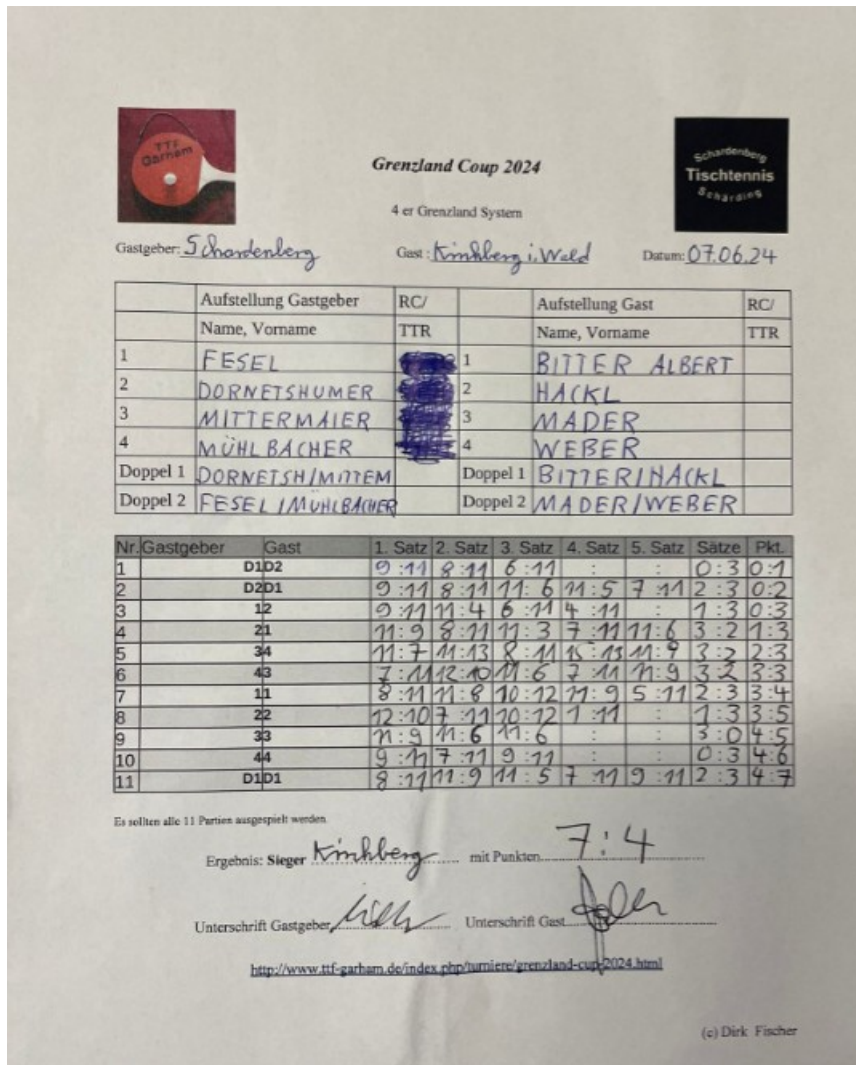 TTF
Garham
Schardenberg
Tischtennis
Schärding
Grenzland Coup 2024
4 er Grenzland System
Gastgeber: Schardenberg Gast: Kirchberg i. Wald Datum: 07.06.24
Aufstellung Gastgeber RC/ Aufstellung Gast RC/
Name, Vorname TTR Name, Vorname TTR
1 FESEL 1 BITTER ALBERT
2 DORNETSHUMER 2 HACKL
3 MITTERMAIER 3 MADER
4 MÜHLBACHER 4 WEBER
Doppel 1 DORNETSH/MITTEM Doppel 1 BITTER/HACKL
Doppel 2 FESEL/MÜHLBACHER Doppel 2 MADER/WEBER
Nr. Gastgeber Gast 1. Satz 2. Satz 3. Satz 4. Satz 5. Satz Sätze Pkt.
1 D1 D2 9:11 8:11 6:11 : : 0:3 0:1
2 D2 D1 9:11 8:11 11:6 11:5 7:11 2:3 0:2
3 1 2 9:11 11:4 6:11 4:11 : 1:3 0:3
4 2 1 11:9 8:11 11:3 7:11 11:6 3:2 1:3
5 3 4 11:7 11:13 8:11 15:13 11:9 3:2 2:3
6 4 3 7:11 12:10 11:6 7:11 11:9 3:2 3:3
7 1 1 8:11 11:8 10:12 11:9 5:11 2:3 3:4
8 2 2 12:10 7:11 10:12 1:11 : 1:3 3:5
9 3 3 11:9 11:6 11:6 : : 3:0 4:5
10 4 4 9:11 7:11 9:11 : : 0:3 4:6
11 D1 D1 8:11 11:9 11:5 7:11 9:11 2:3 4:7
Es sollten alle 11 Partien ausgespielt werden
Ergebnis: Sieger Kirchberg mit Punkten 7:4
Unterschrift Gastgeber Unterschrift Gast
http://www.ttf-garham.de/index.php/turniere/grenzland-cup-2024.html
(c) Dirk Fischer